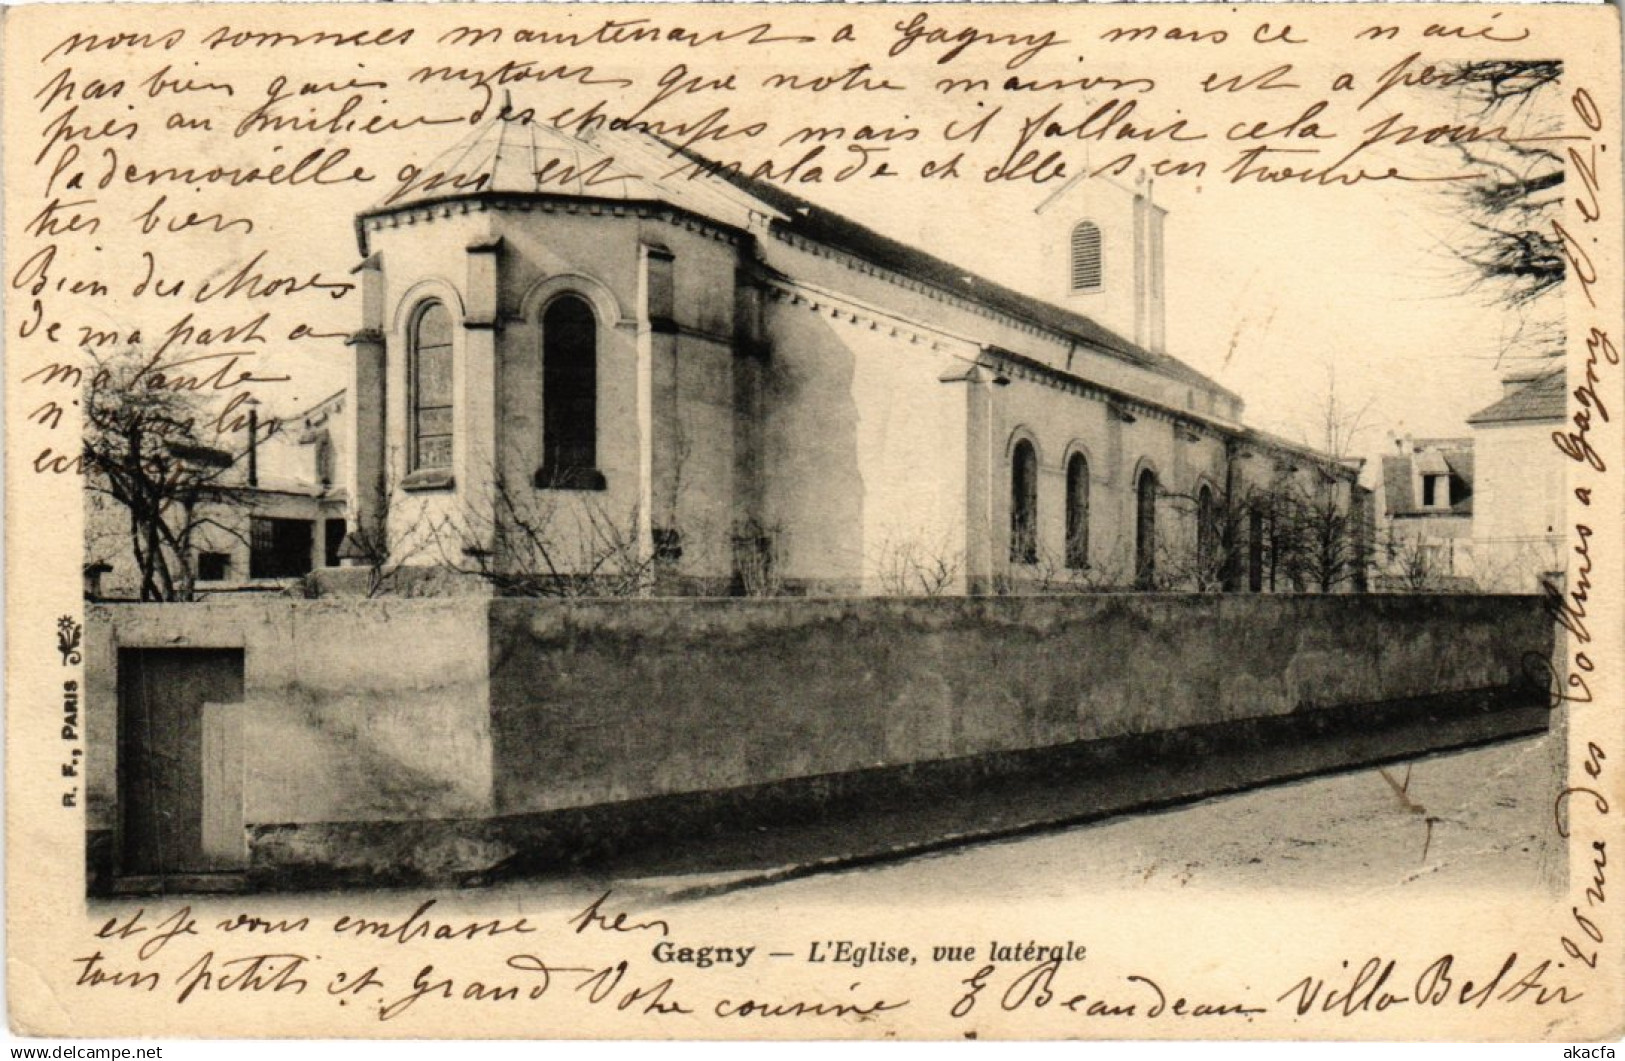 nous sommes maintenant a Gagny mais ce n'aié
pas bien gaie surtout que notre maison est a peu
près au milieu des champs mais il fallait cela pour
la demoiselle qui est malade et elle s'en trouve
tres bien
Bien des choses
de ma part a
ma tante
et je vous embrasse bien
tous petits et Grand Votre cousine E Beaudeau Villa Belair
20 rue des Collines a Gagny S. et O
Gagny — L'Eglise, vue latérale
R. F., PARIS
akacfa